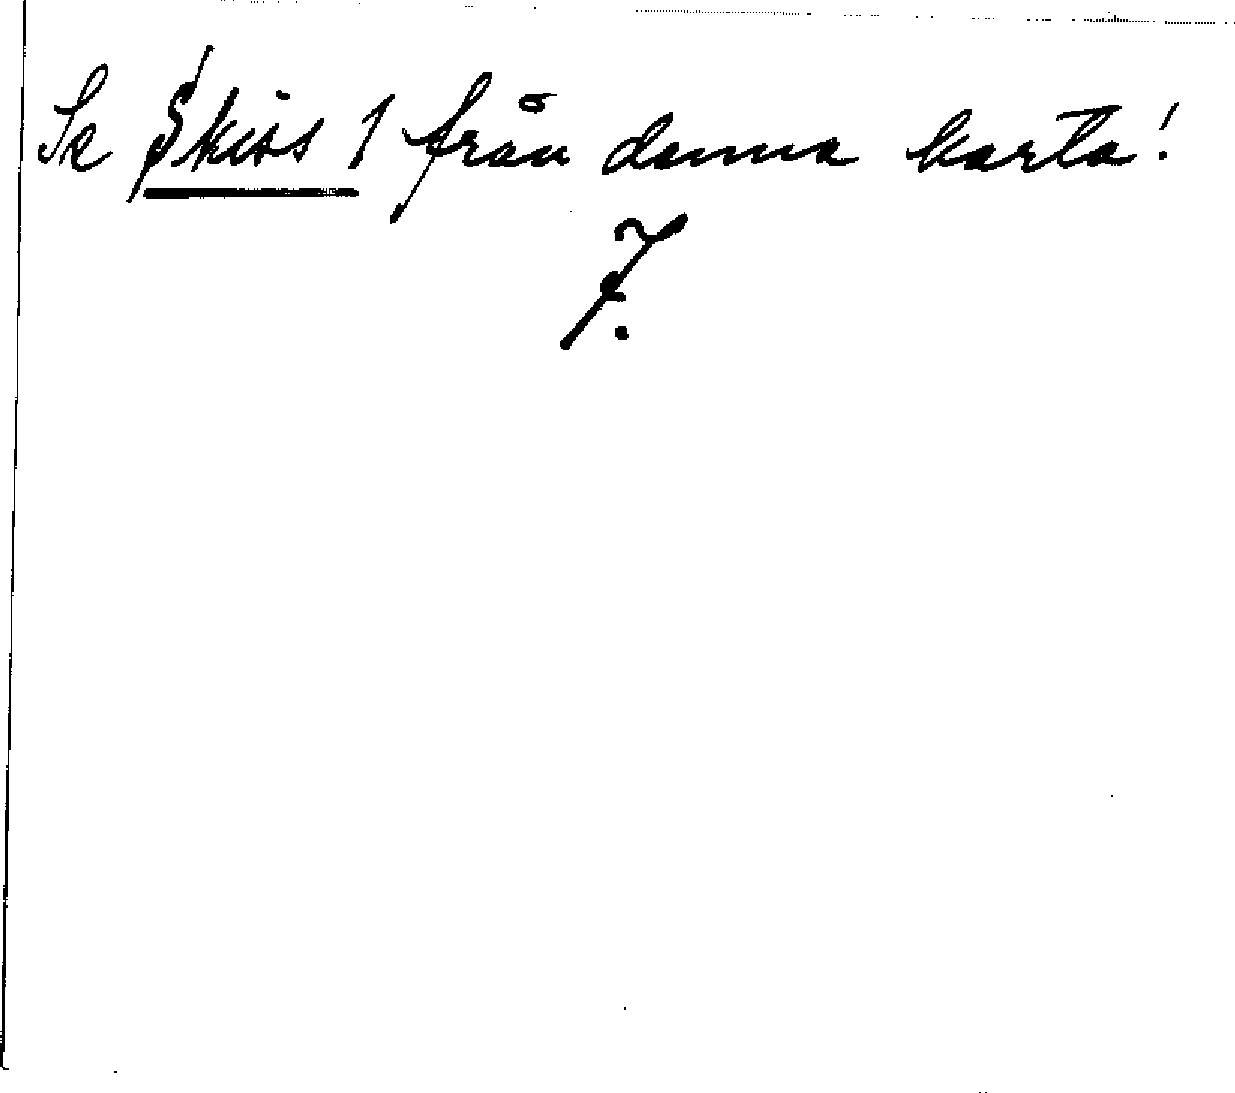 Se Skiss 1 från denna karta!
7.